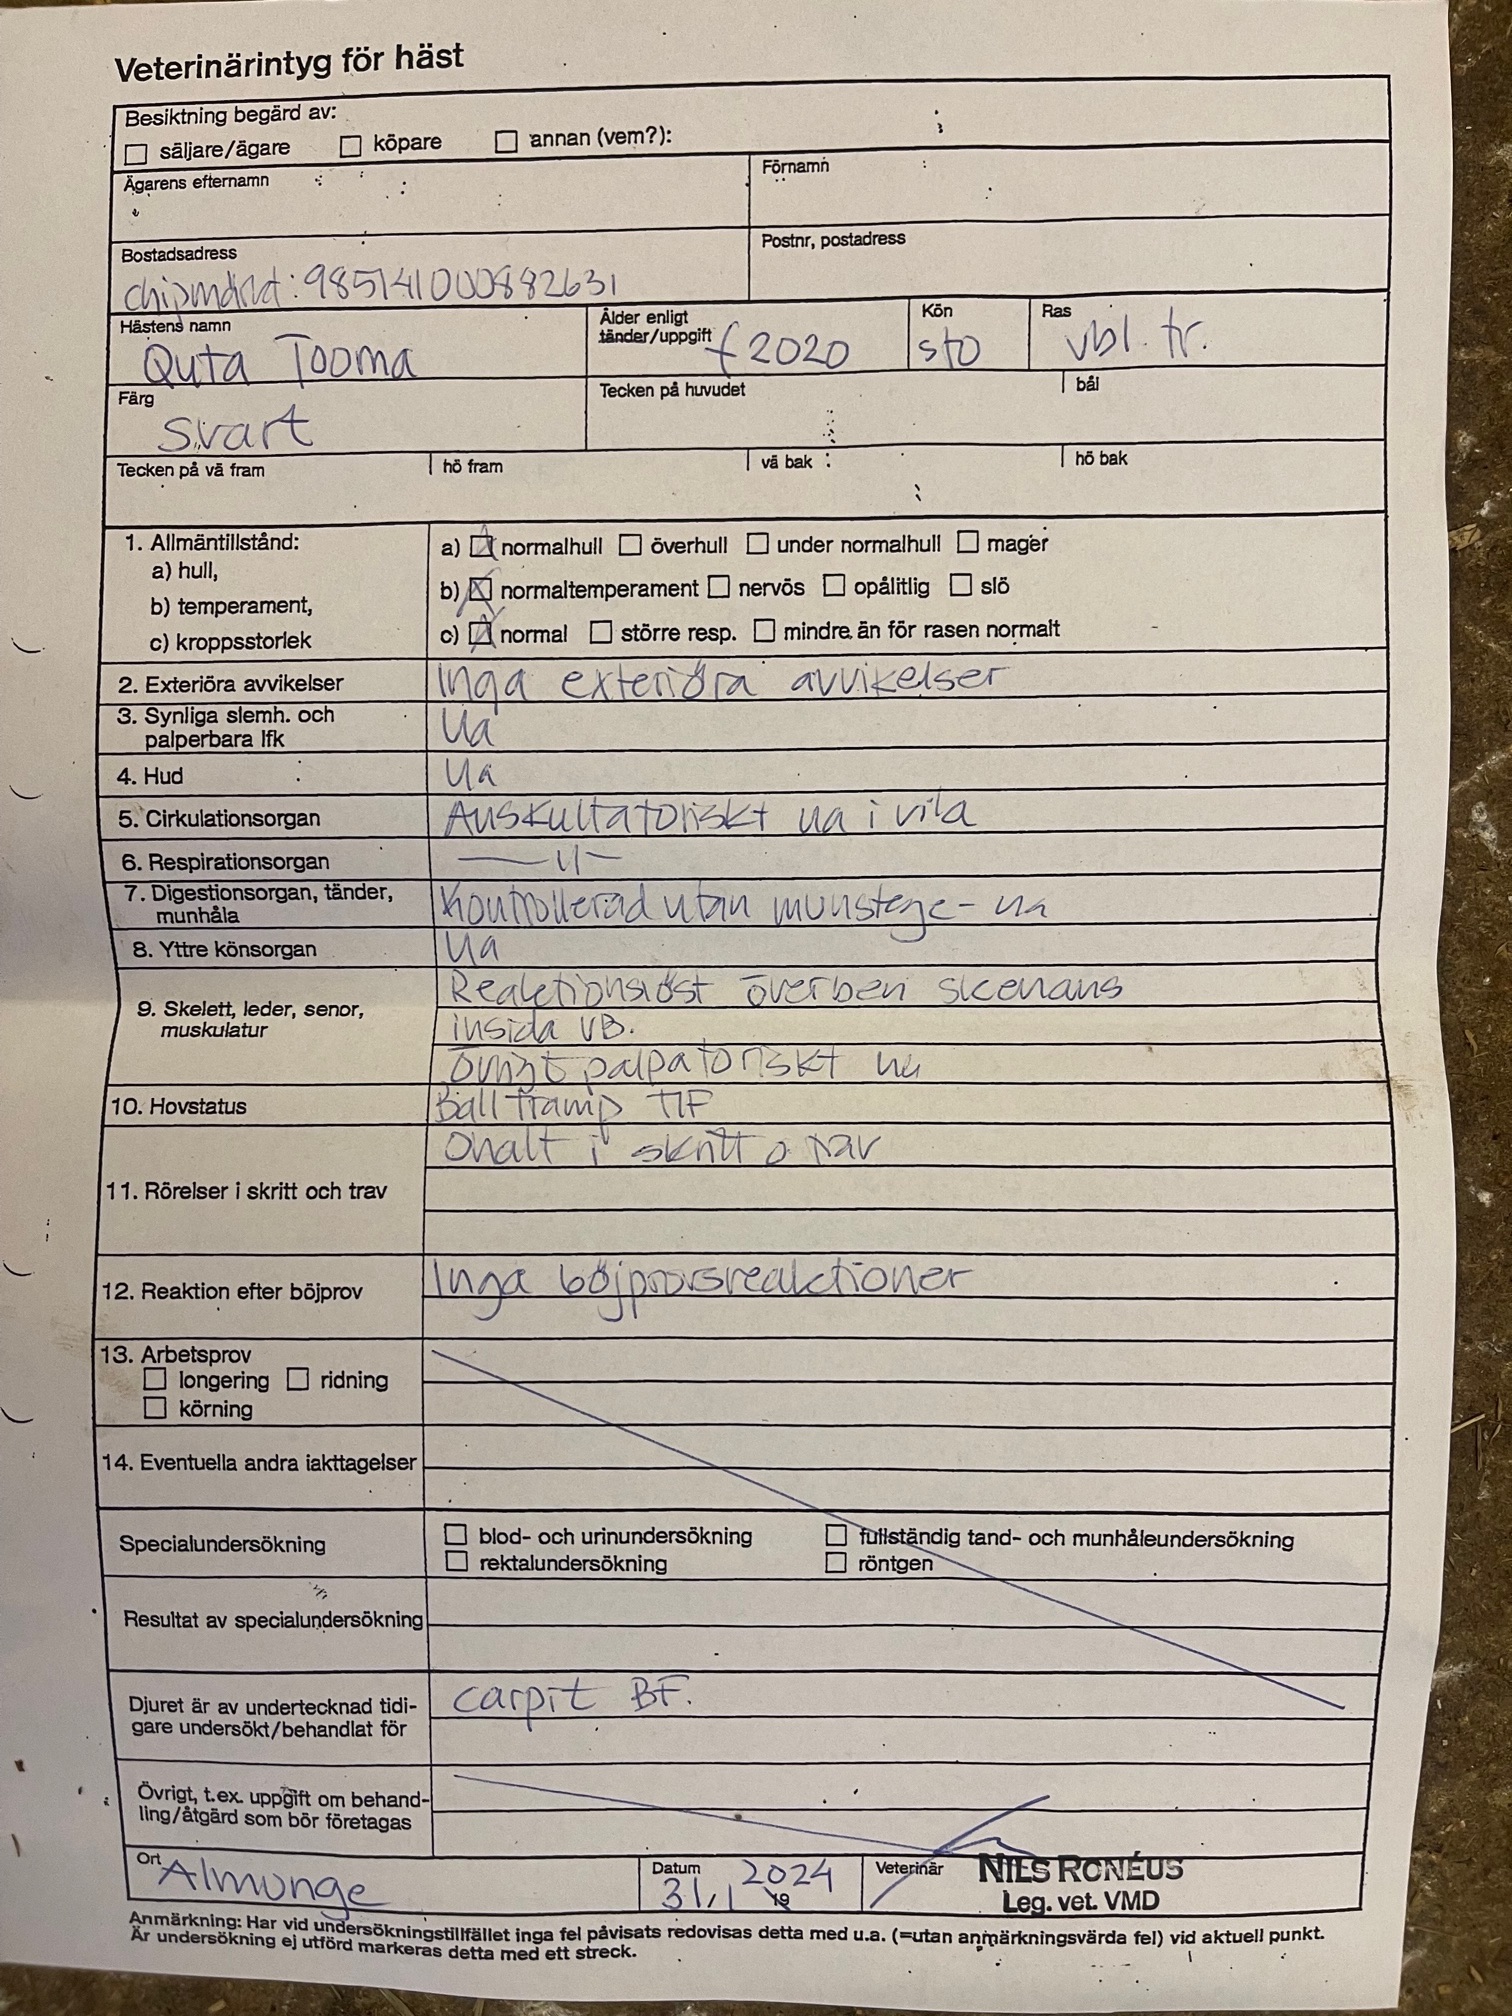 Veterinärintyg för häst
Besiktning begärd av:
☐ säljare/ägare ☐ köpare ☐ annan (vem?):
Ägarens efternamn Förnamn
Bostadsadress Postnr, postadress
chipmärkt: 985141000882631
Hästens namn Ålder enligt tänder/uppgift Kön Ras
Quta Tooma f 2020 sto vbl. tr.
Färg Tecken på huvudet bål
Svart
Tecken på vä fram hö fram vä bak hö bak
1. Allmäntillstånd:
a) hull, a) ☒ normalhull ☐ överhull ☐ under normalhull ☐ mager
b) temperament, b) ☒ normaltemperament ☐ nervös ☐ opålitlig ☐ slö
c) kroppsstorlek c) ☒ normal ☐ större resp. ☐ mindre än för rasen normalt
2. Exteriöra avvikelser Inga exteriöra avvikelser
3. Synliga slemh. och palperbara lfk Ua
4. Hud Ua
5. Cirkulationsorgan Auskultatoriskt ua i vila
6. Respirationsorgan —— 11 —
7. Digestionsorgan, tänder, munhåla Kontrollerad utan munstege - ua
8. Yttre könsorgan Ua
9. Skelett, leder, senor, muskulatur Reaktionslöst överben skenans
insida VB.
Övrigt palpatoriskt ua
10. Hovstatus Balltramp
11. Rörelser i skritt och trav Ohalt i skritt o trav
12. Reaktion efter böjprov Inga böjprovsreaktioner
13. Arbetsprov
☐ longering ☐ ridning
☐ körning
14. Eventuella andra iakttagelser
Specialundersökning ☐ blod- och urinundersökning ☐ fullständig tand- och munhåleundersökning
☐ rektalundersökning ☐ röntgen
Resultat av specialundersökning
Djuret är av undertecknad tidi-
gare undersökt/behandlat för carpit BF.
Övrigt, t.ex. uppgift om behand-
ling/åtgärd som bör företagas
Ort Datum Veterinär
Almunge 31/1 2024 19 NILS RONÉUS
Leg. vet. VMD
Anmärkning: Har vid undersökningstillfället inga fel påvisats redovisas detta med u.a. (=utan anmärkningsvärda fel) vid aktuell punkt.
Är undersökning ej utförd markeras detta med ett streck.